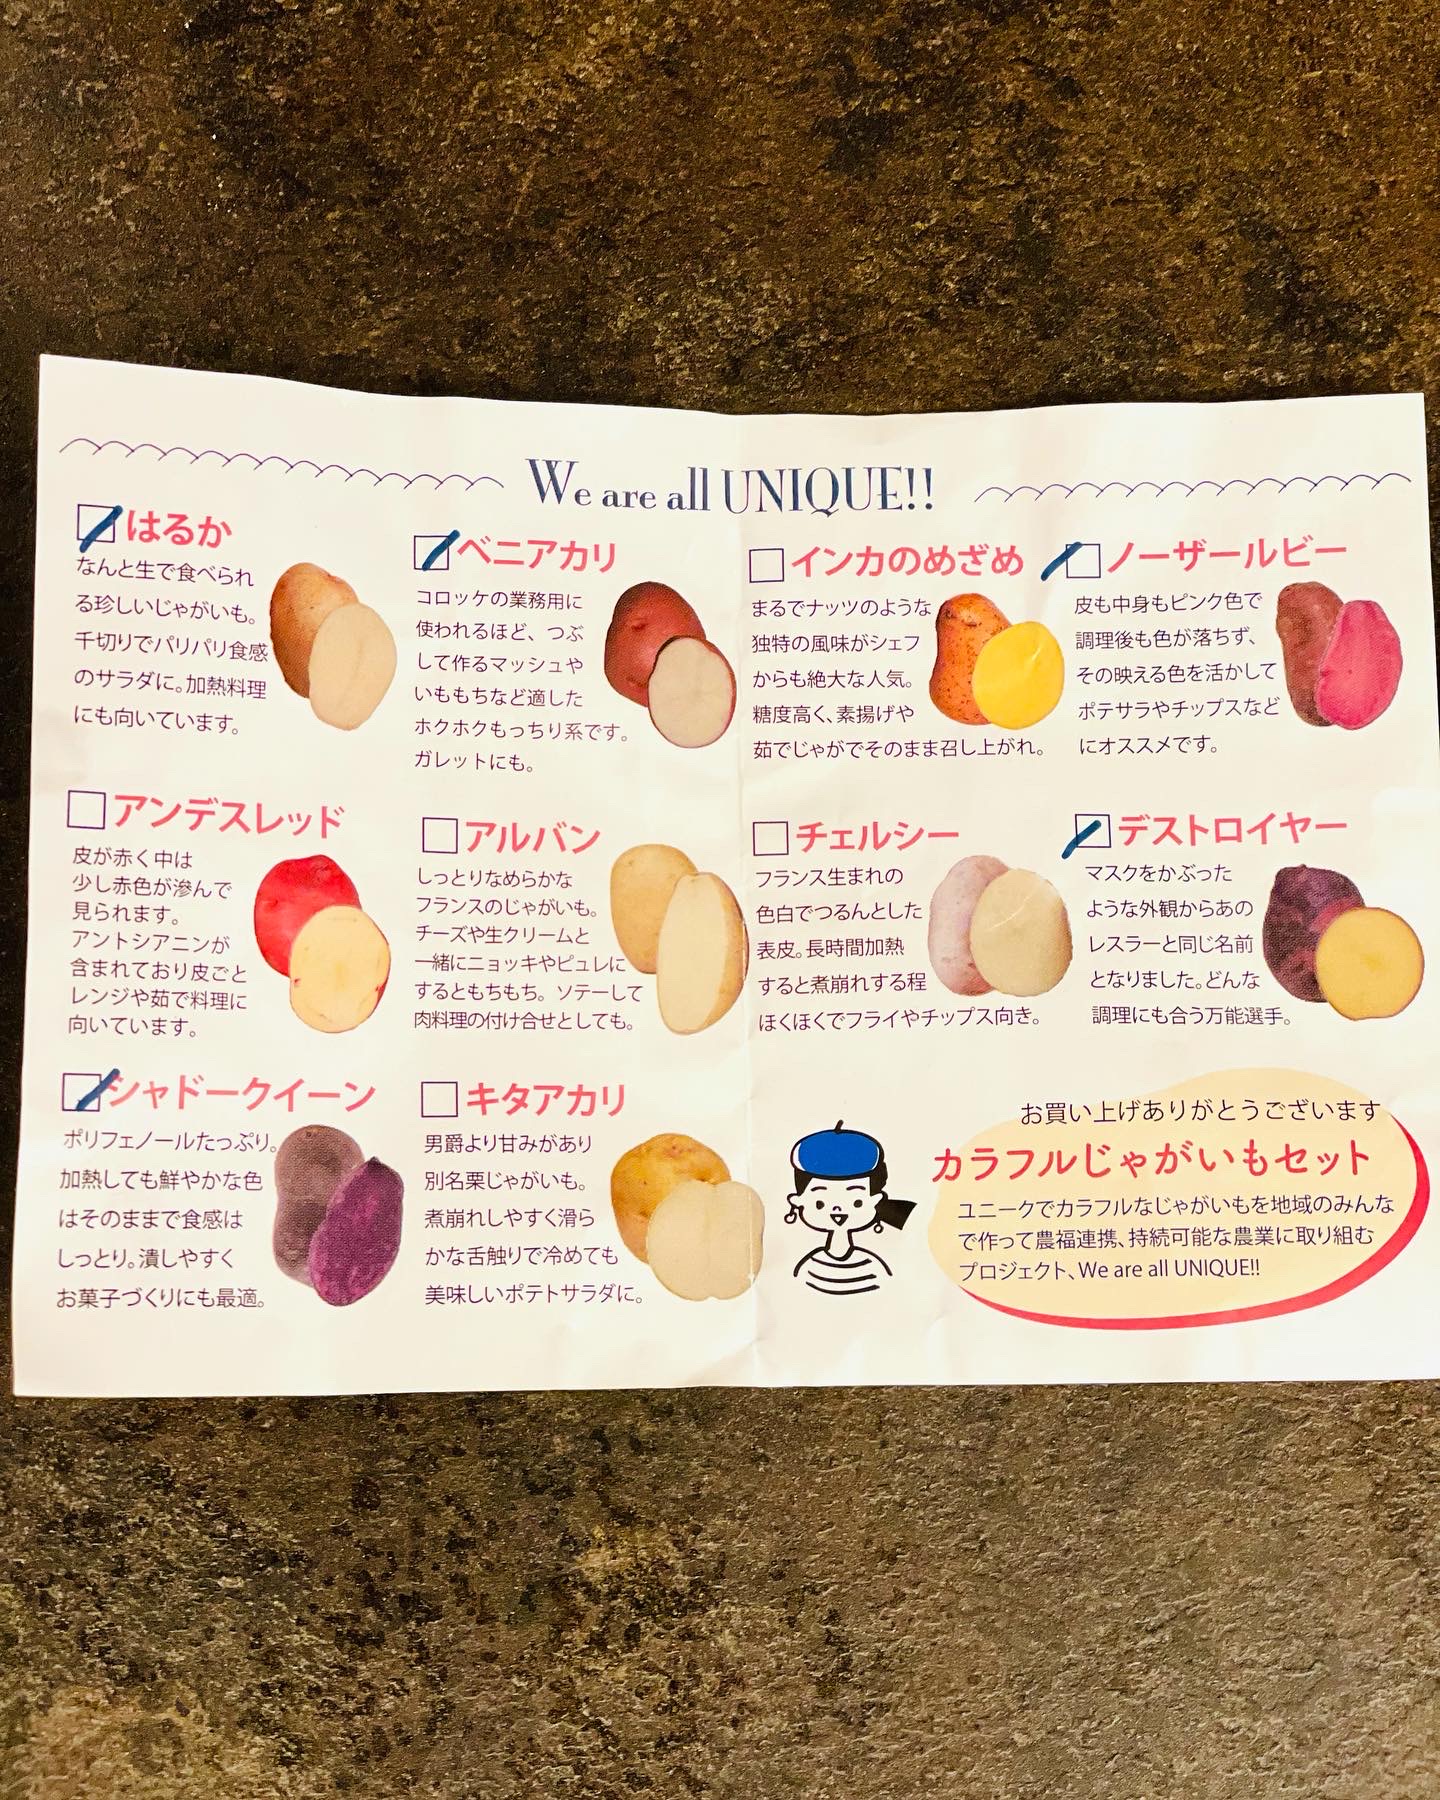 We are all UNIQUE!!
はるか
なんと生で食べられ
る珍しいじゃがいも。
千切りでパリパリ食感
のサラダに。加熱料理
にも向いています。
ベニアカリ
コロッケの業務用に
使われるほど、つぶ
して作るマッシュや
いももちなど適した
ホクホクもっちり系です。
ガレットにも。
インカのめざめ
まるでナッツのような
独特の風味がシェフ
からも絶大な人気。
糖度高く、素揚げや
茹でじゃがでそのまま召し上がれ。
ノーザールビー
皮も中身もピンク色で
調理後も色が落ちず、
その映える色を活かして
ポテサラやチップスなど
にオススメです。
アンデスレッド
皮が赤く中は
少し赤色が滲んで
見られます。
アントシアニンが
含まれており皮ごと
レンジや茹で料理に
向いています。
アルバン
しっとりなめらかな
フランスのじゃがいも。
チーズや生クリームと
一緒にニョッキやピュレに
するともちもち。ソテーして
肉料理の付け合せとしても。
チェルシー
フランス生まれの
色白でつるんとした
表皮。長時間加熱
すると煮崩れする程
ほくほくでフライやチップス向き。
デストロイヤー
マスクをかぶった
ような外観からあの
レスラーと同じ名前
となりました。どんな
調理にも合う万能選手。
シャドークイーン
ポリフェノールたっぷり。
加熱しても鮮やかな色
はそのままで食感は
しっとり。潰しやすく
お菓子づくりにも最適。
キタアカリ
男爵より甘みがあり
別名栗じゃがいも。
煮崩れしやすく滑ら
かな舌触りで冷めても
美味しいポテトサラダに。
お買い上げありがとうございます
カラフルじゃがいもセット
ユニークでカラフルなじゃがいもを地域のみんな
で作って農福連携、持続可能な農業に取り組む
プロジェクト、We are all UNIQUE!!